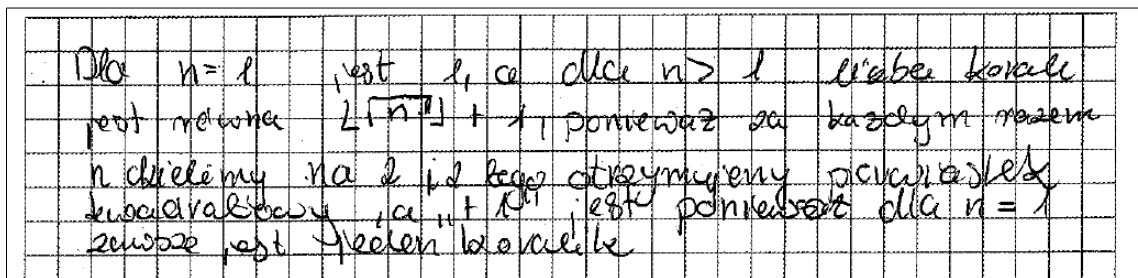 Dla n = 1 jest 1, a dla n > 1 liczba korali
jest równa ⌊√n⌋ + 1, ponieważ za każdym razem
n dzielimy na 2 i z tego otrzymujemy pierwiastek
kwadratowy, a „+ 1" jest ponieważ dla n = 1
zawsze jest jeden koralik